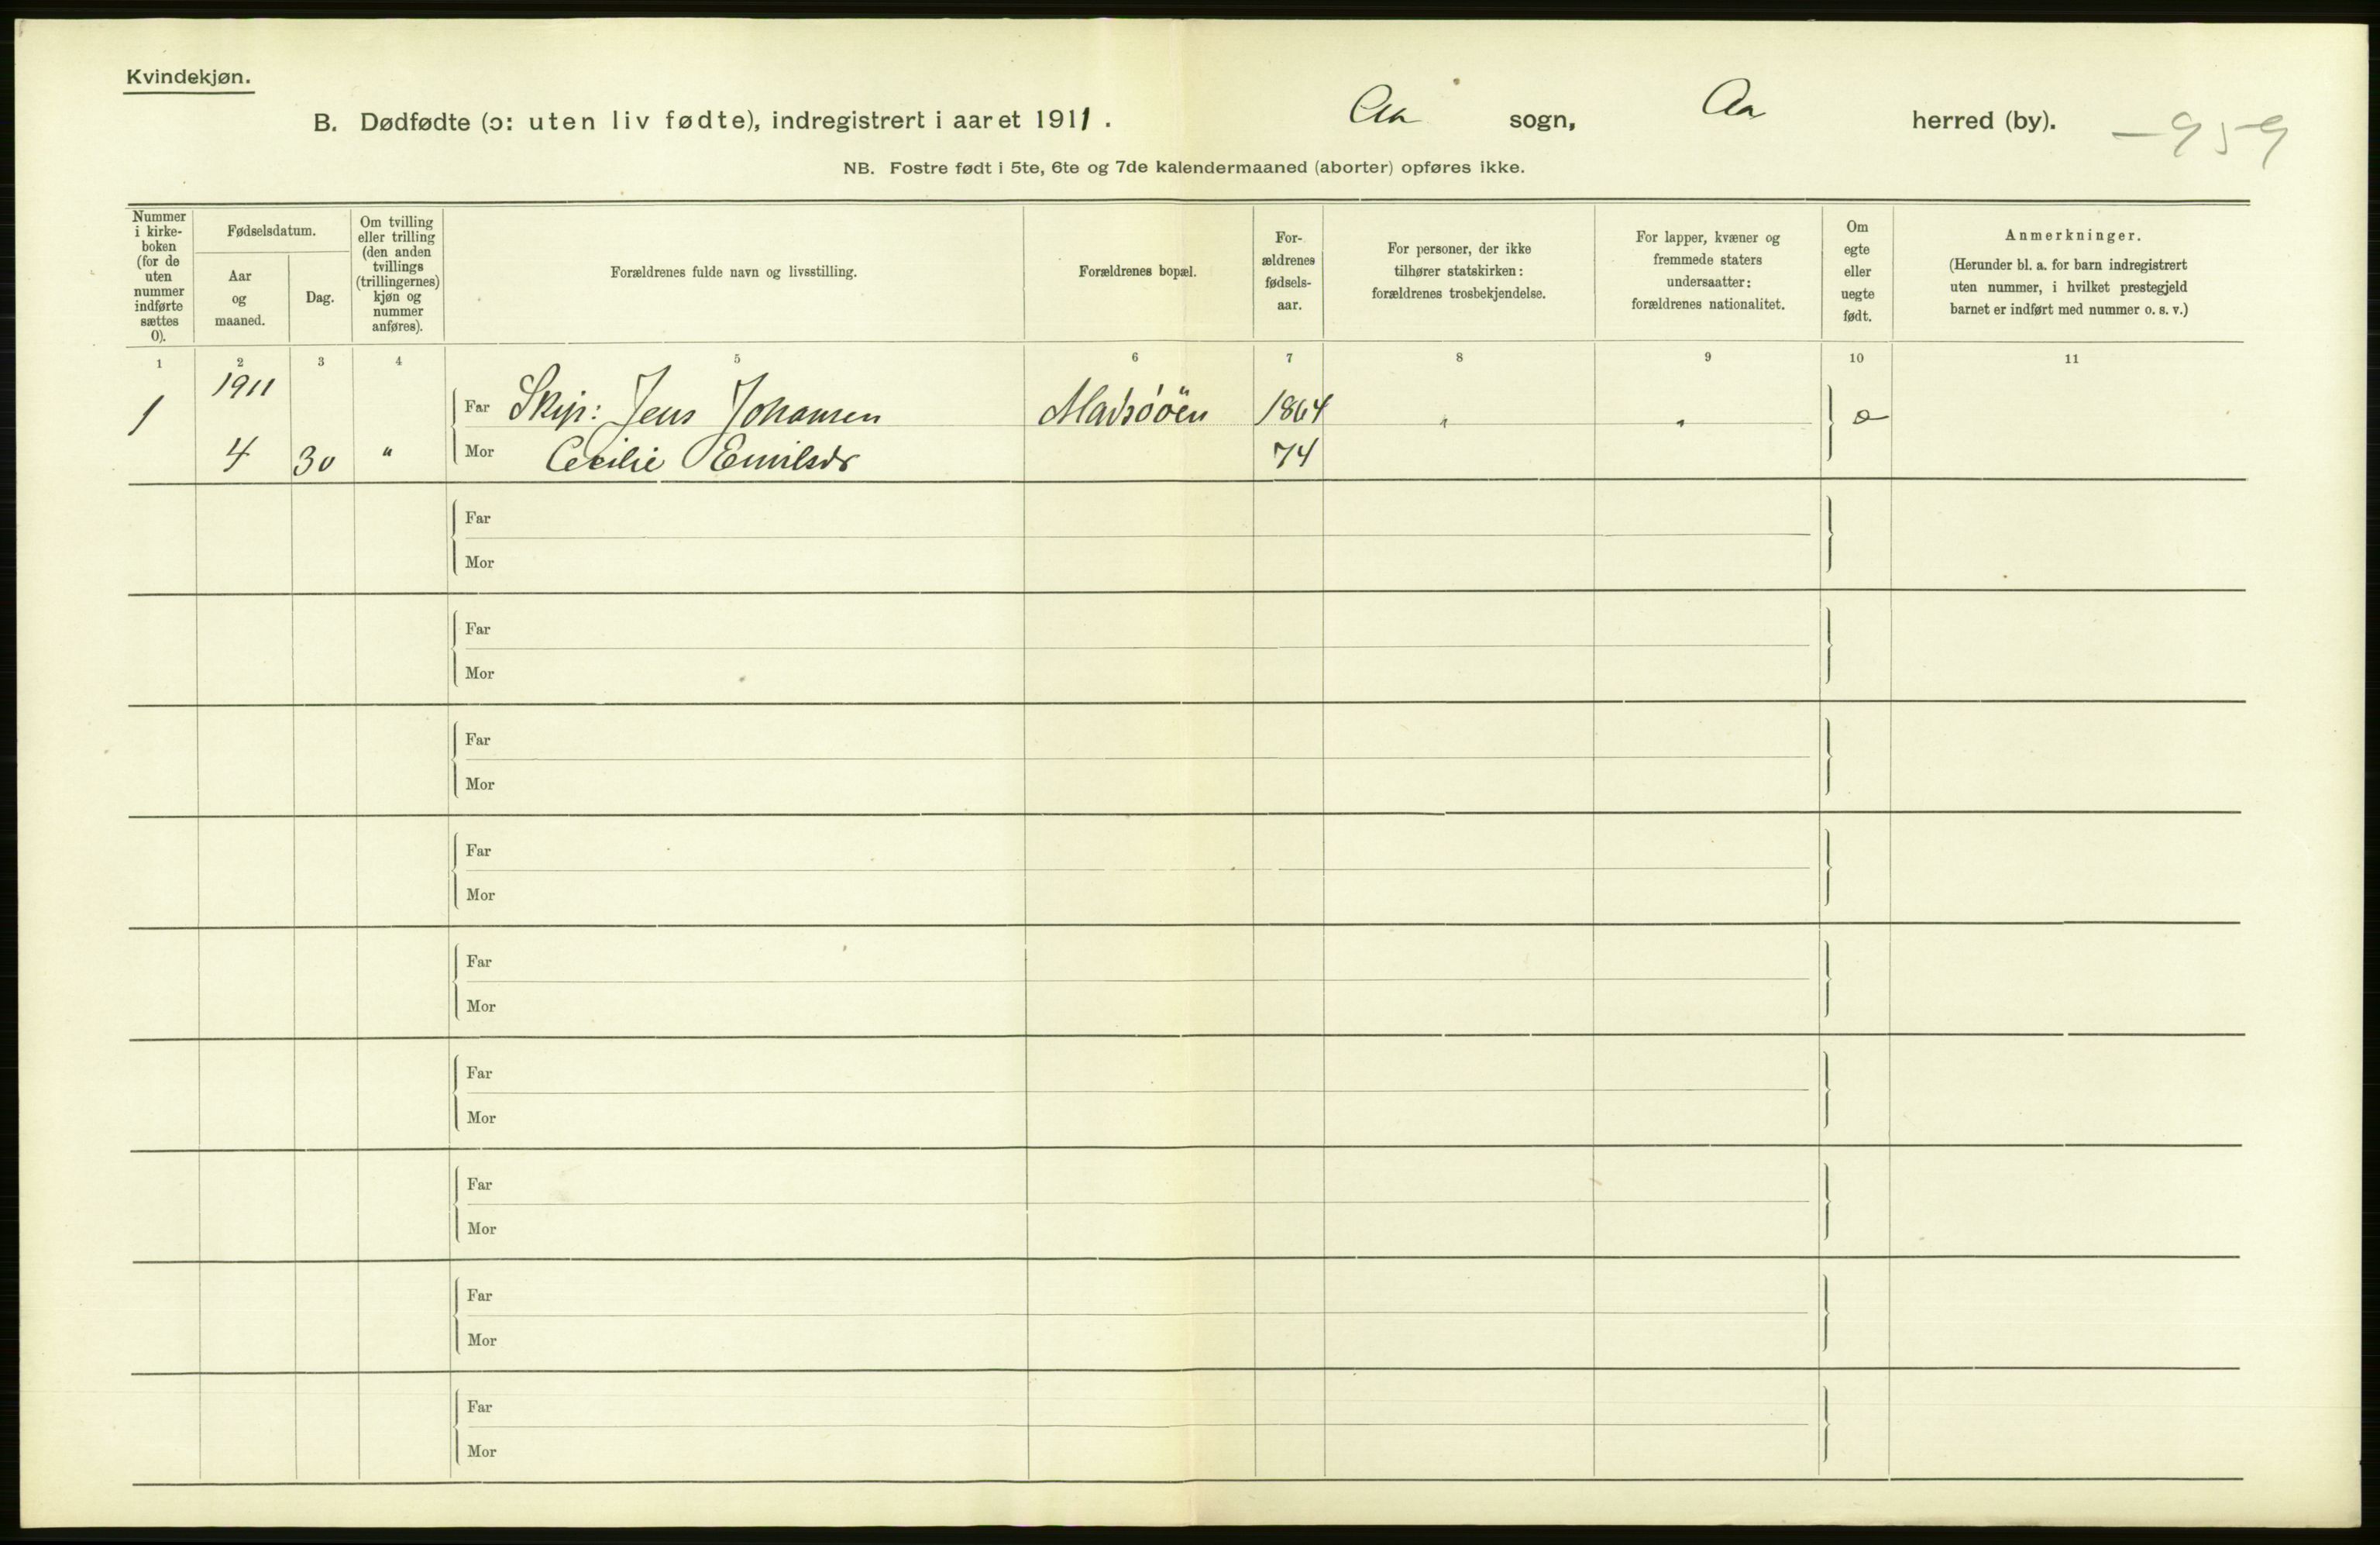 Kvindekjøn.
B. Dødfødte (ɔ: uten liv fødte), indregistrert i aaret 1911. Aa sogn, Aa herred (by). —959
NB. Fostre født i 5te, 6te og 7de kalendermaaned (aborter) opføres ikke.
Nummer
i kirke-
boken
(for de
uten
nummer
indførte
sættes
0).
Fødselsdatum.
Aar
og
maaned.
Dag.
Om tvilling
eller trilling
(den anden
tvillings
(trillingernes)
kjøn og
nummer
anføres).
Forældrenes fulde navn og livsstilling.
Forældrenes bopæl.
For-
ældrenes
fødsels-
aar.
For personer, der ikke
tilhører statskirken:
forældrenes trosbekjendelse.
For lapper, kvæner og
fremmede staters
undersaatter:
forældrenes nationalitet.
Om
egte
eller
uegte
født.
Anmerkninger.
(Herunder bl. a. for barn indregistrert
uten nummer, i hvilket prestegjeld
barnet er indført med nummer o. s. v.)
1 2 3 4 5 6 7 8 9 10 11
1911
1 Far Skip: Jens Johansen 1864 " "
4 30 " Mor Cecilie Emilsdr 74
Far
Mor
Far
Mor
Far
Mor
Far
Mor
Far
Mor
Far
Mor
Far
Mor
Far
Mor
Far
Mor